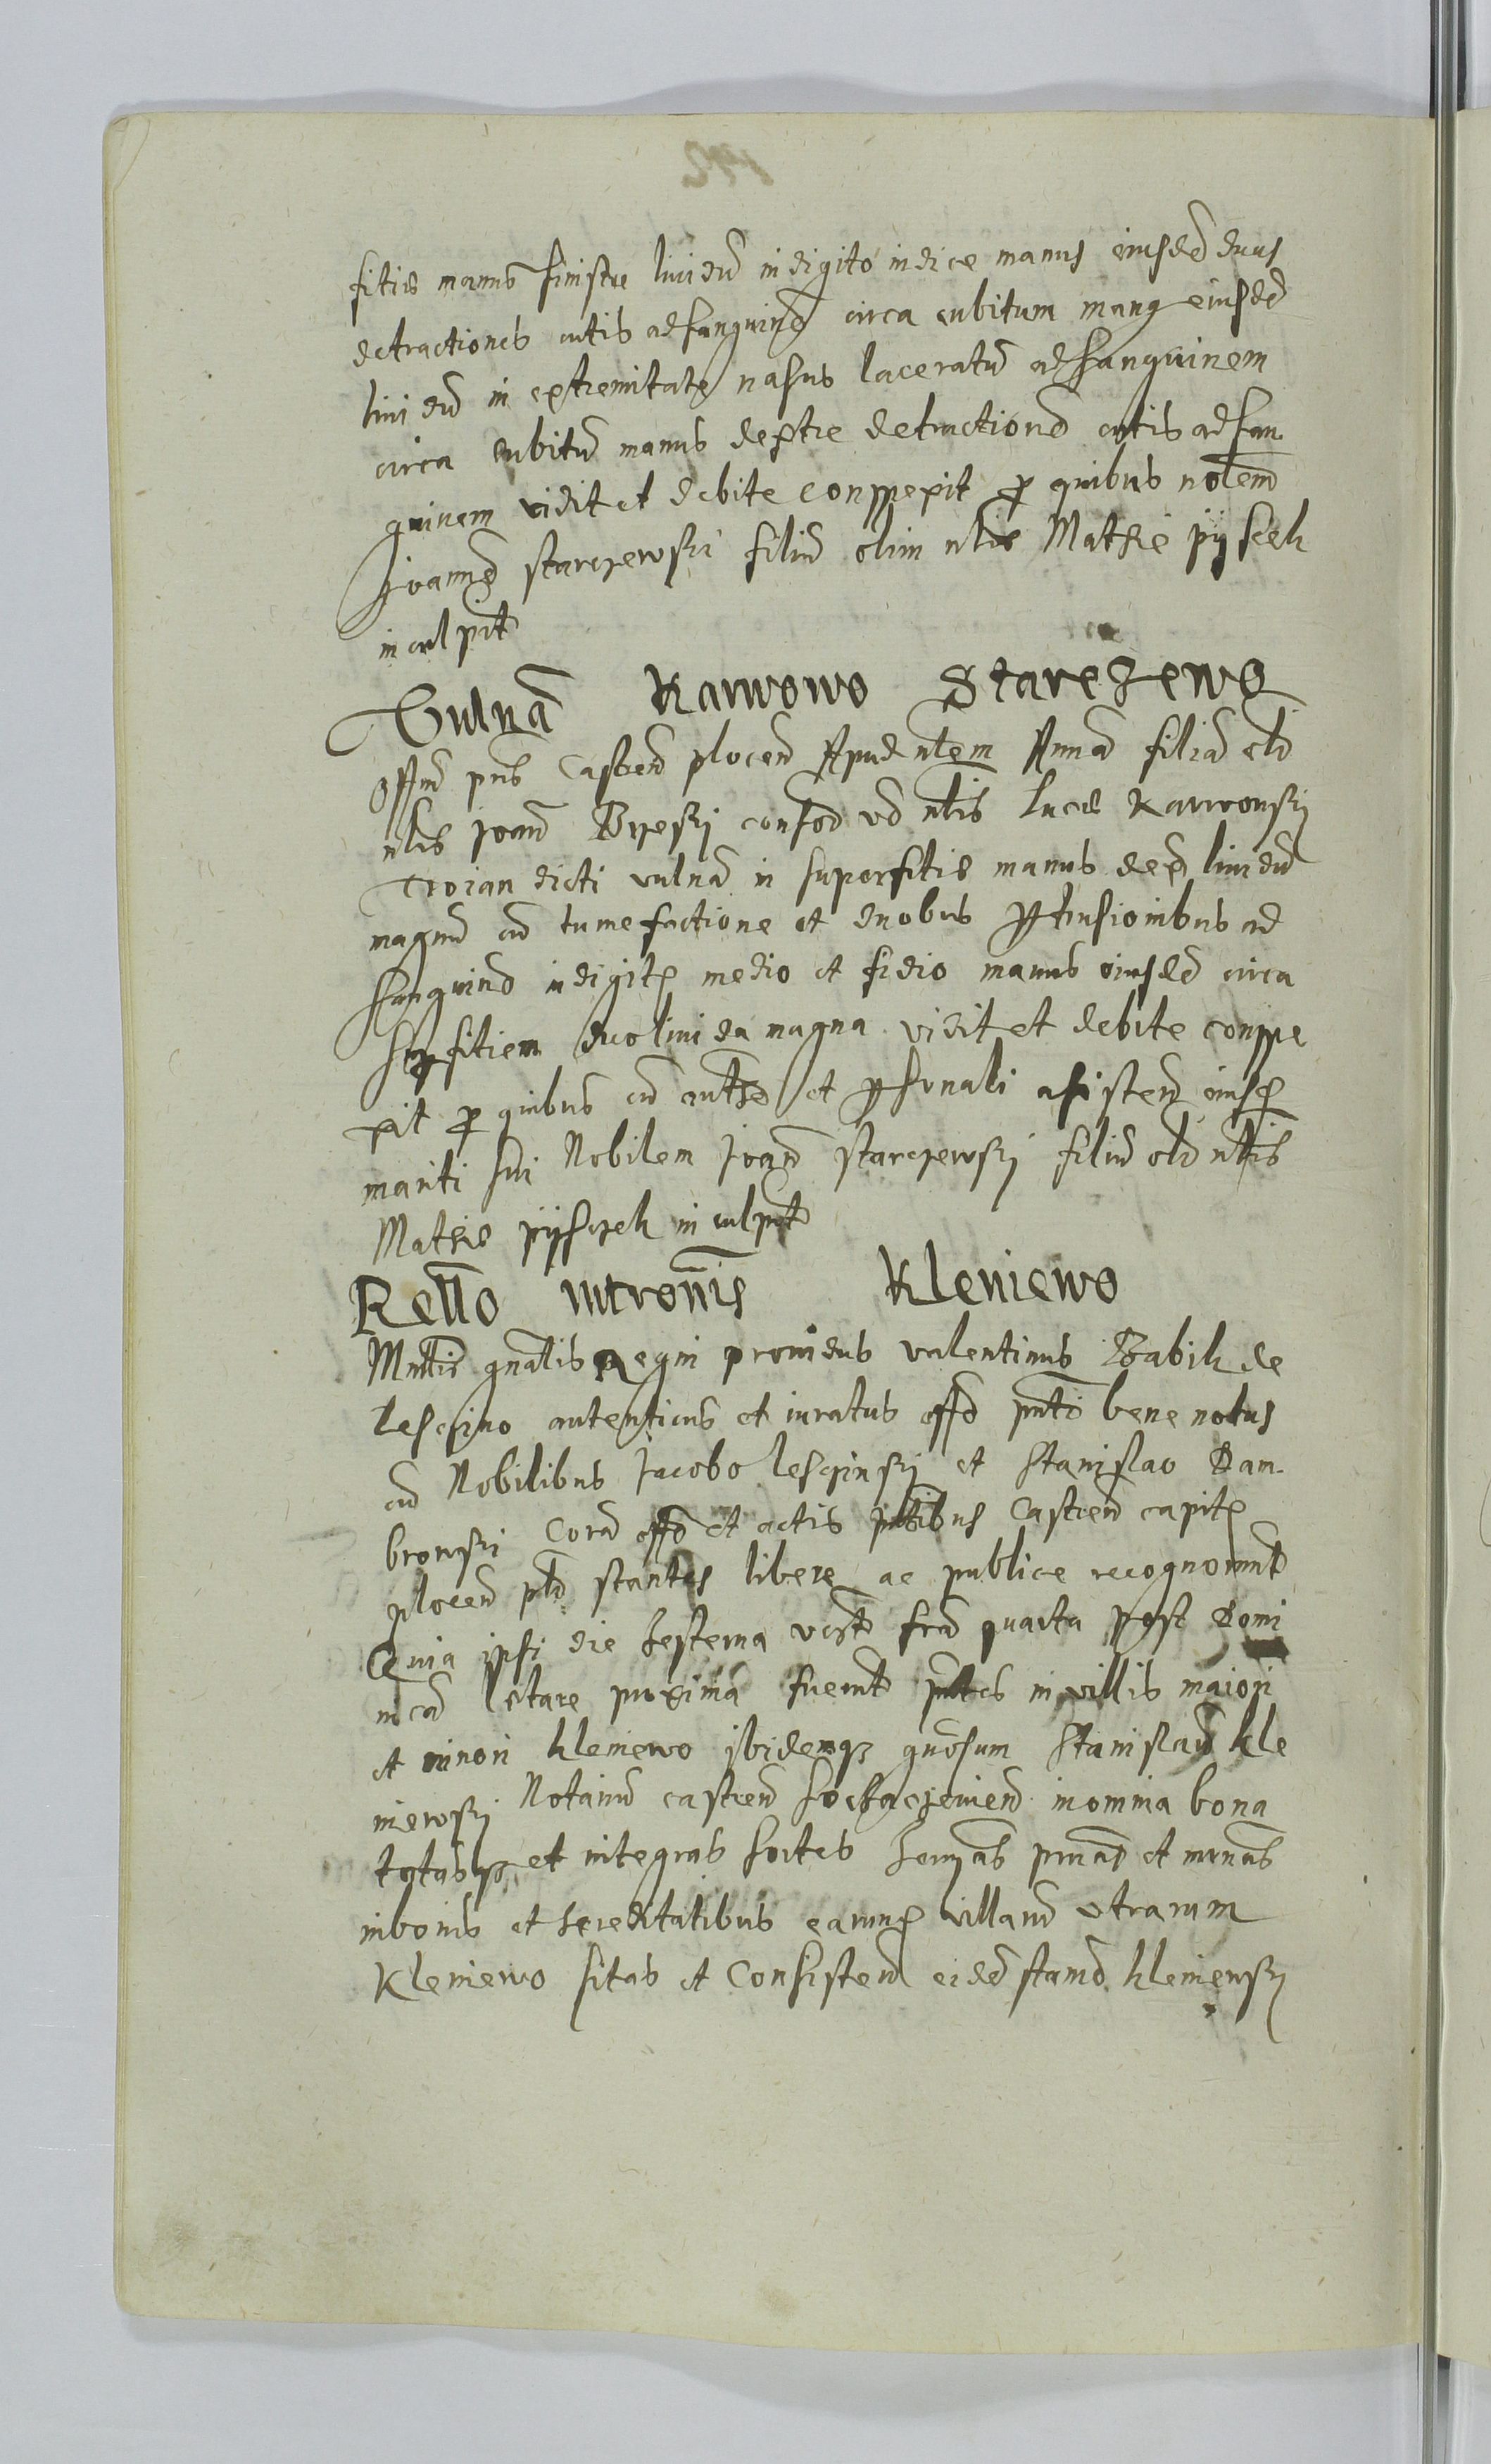 fitie manus sinistre lividu in digito indice manus eiusde duas
detractiones cutis ad sanguine circa cubitum manus eiusde
lividu in extremitate nasus laceratu ad sanguinem
circa cubitu manus dextre detractione cutis ad san
guinem vidit et debite conspexit p quibus nobilem
Joanne starczewski filiu olim nlis Mathie pyscek
inculpat
Vulna Karwowo Starczewo
Offm pns Castren plocen Apud nlem Anna filia oli
nlis Joan Brzeski consor vo nlis Luce Karwowski
Troian dicti vulna in superfitie manus dex lividu
magnu cu tumefactione et duobus ptusionibus ad
sanguine in digito medio et fidio manus eiusde circa
supfitiem duo livida magna vidit et debite conspe
xit p quibus cu et psonali assisten eiusd
mariti sui Nobilem Joan starczewski filiu oli nlis
Mathie pysczek inculpat
Rello intronis Kleniewo
Mintis gnalis Regni providus valentinus Babik de
lesczino autenticus et iuratus offo pnti bene notus
cu Nobilibus Jacobo lesczinski et Stanislao Dam
browski Cora offo et actis pntibus Castren capit
plocen pli stantes libere ac publice recognoverunt
Quia ipsi die hesterna vidt fria quarta post Domi
nica letare proxima fuerunt pntes in villis maiori
et minori kleniewo ibidemq gnosum Stanislau kle
niewski Notariu castren in omnia bona
totasq et integras sortes
in bonis et hereditatibus earund villaru utrarum
Kleniewo sitas et Consisten eide stanis kleniewski